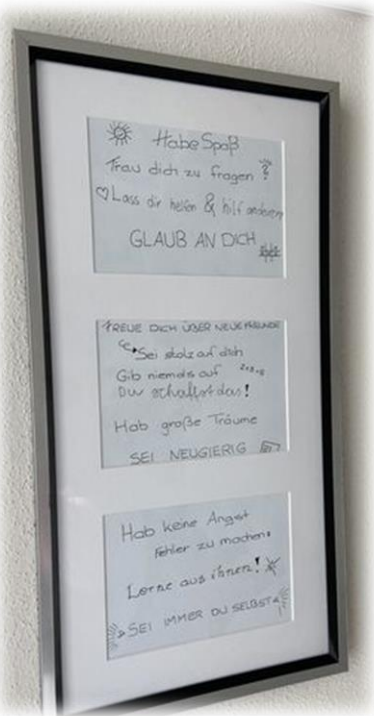 Habe Spaß
Trau dich zu fragen?
Lass dir helfen & hilf anderen
GLAUB AN DICH
FREUE DICH ÜBER NEUE FREUNDE
Sei stolz auf dich
Gib niemals auf
Du schaffst das!
Hab große Träume
SEI NEUGIERIG
Hab keine Angst
Fehler zu machen.
Lerne aus ihnen!
SEI IMMER DU SELBST